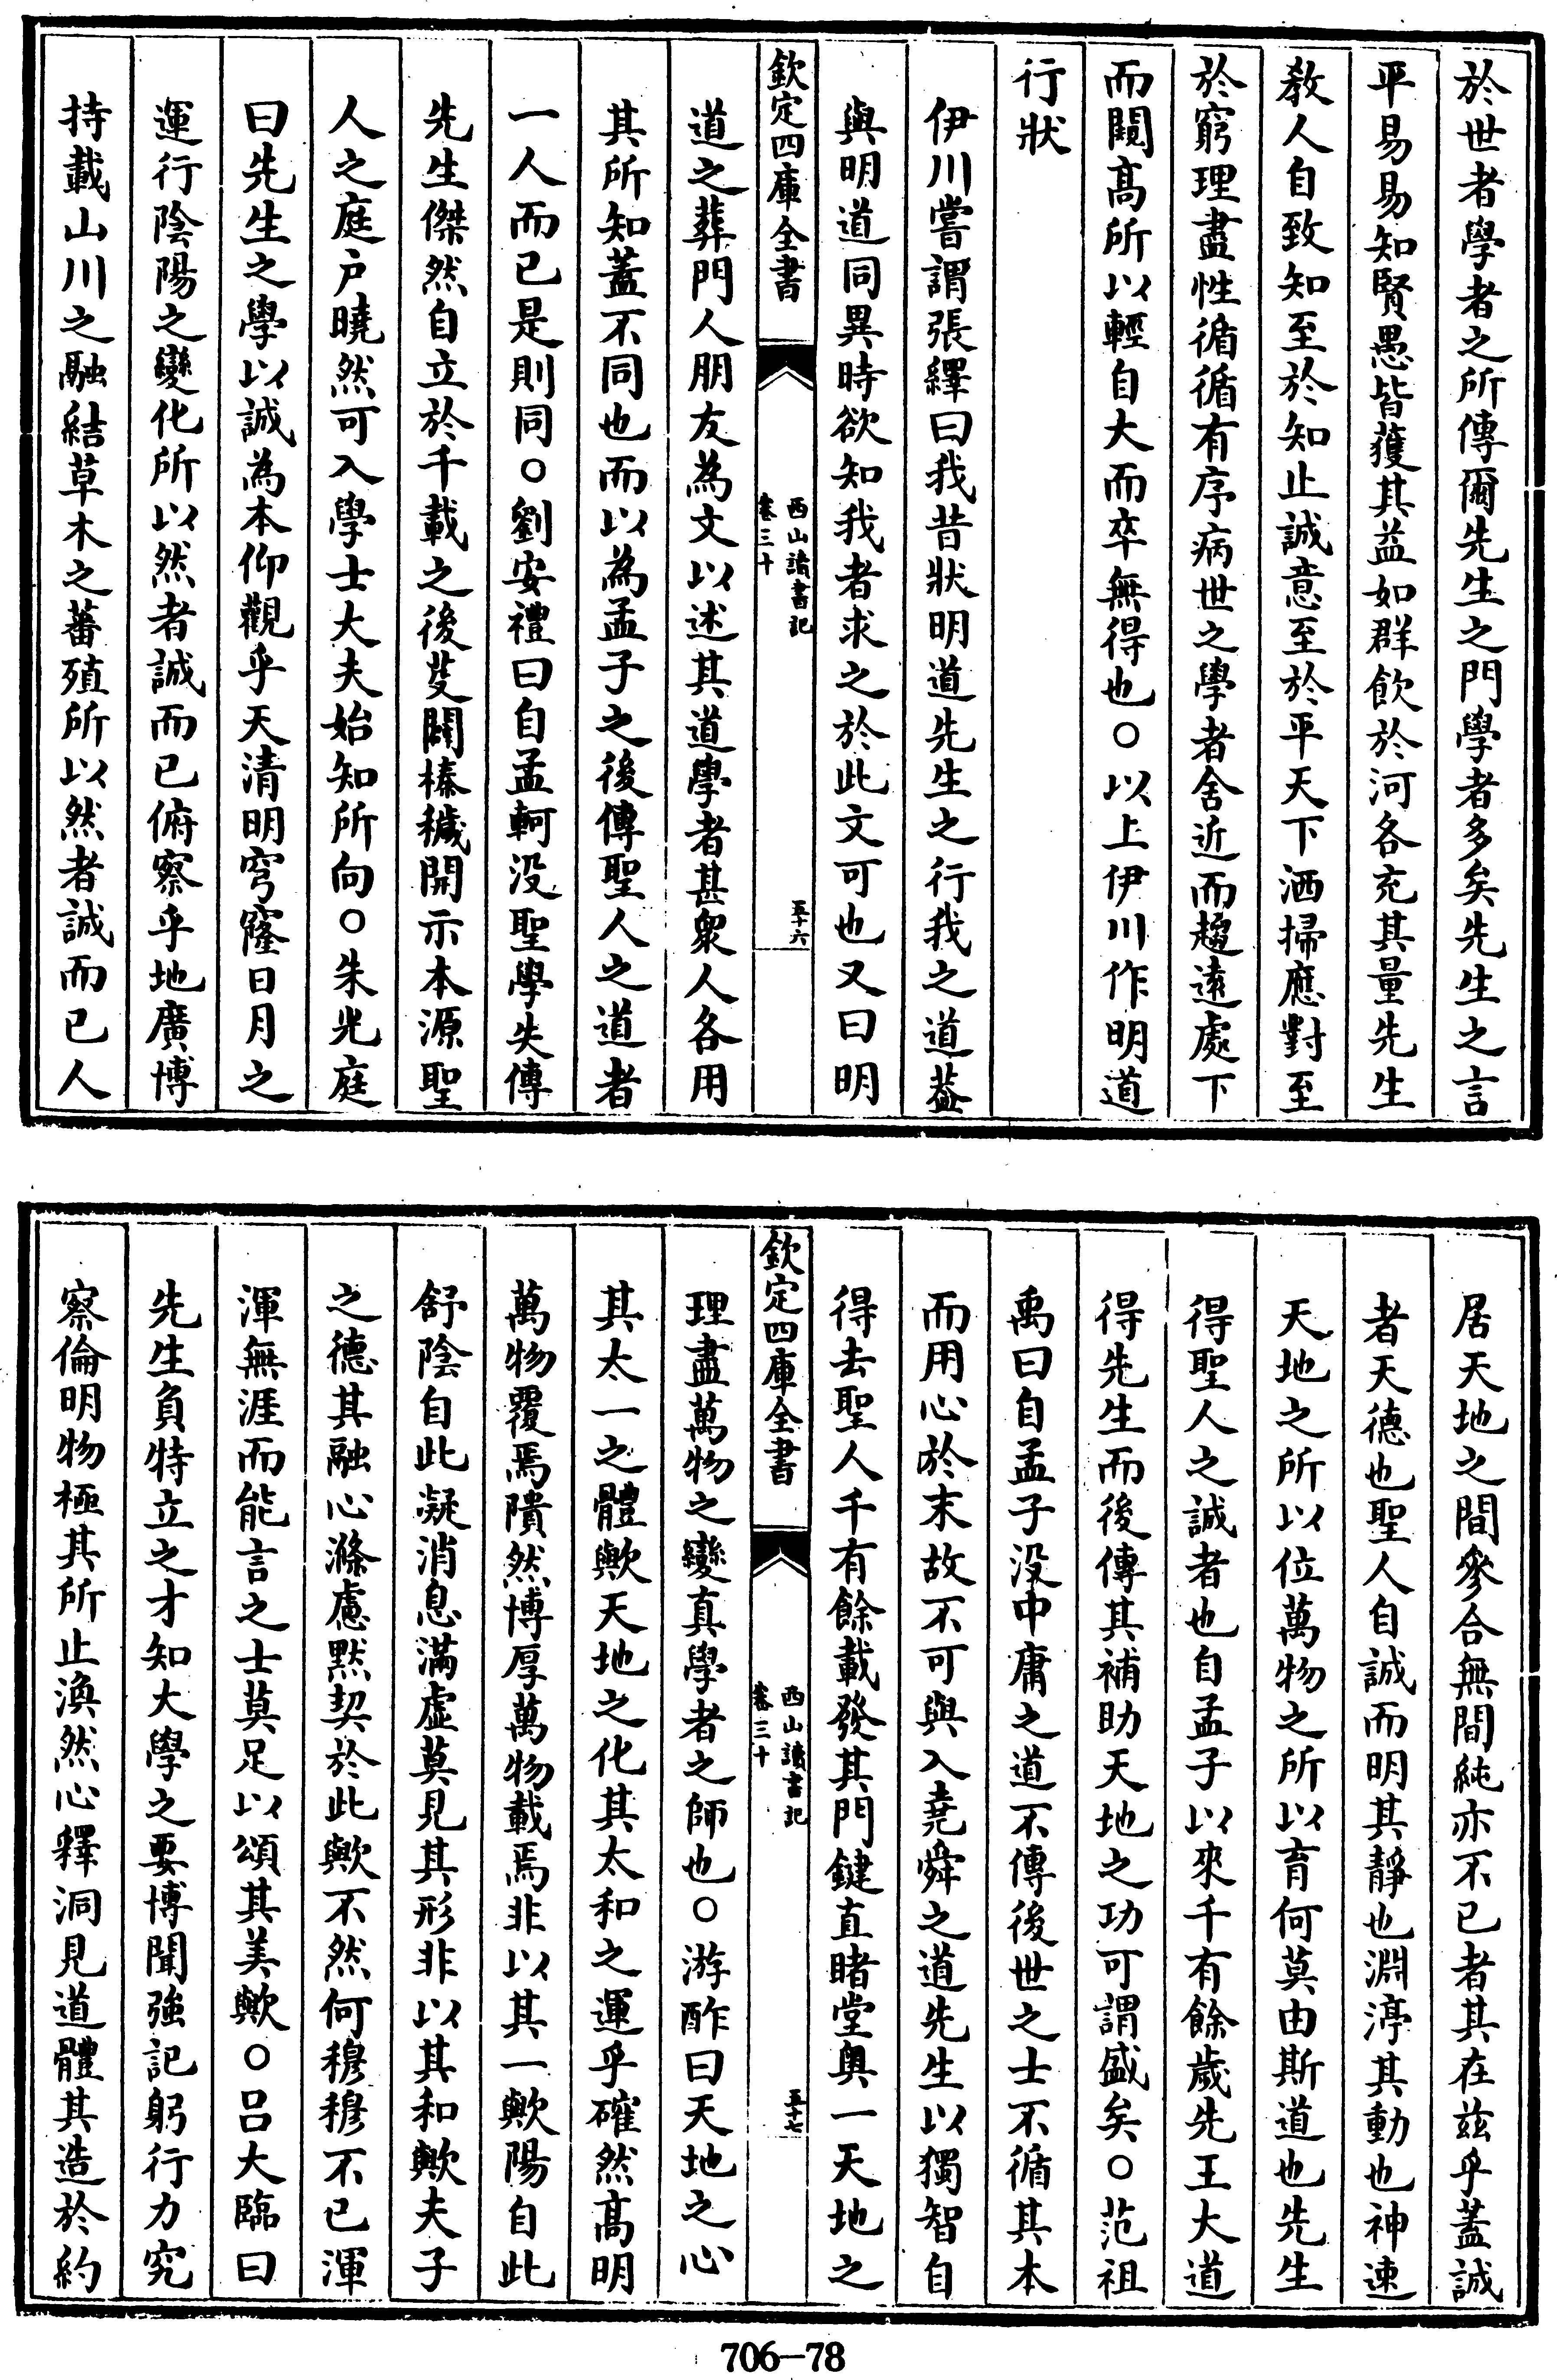 於世者學者之所傳爾先生之門學者多矣先生之言
平易易知賢愚皆獲其益如群飲於河各充其量先生
教人自致知至於知止誠意至於平天下洒掃應對至
於窮理盡性循循有序病世之學者舍近而趨遠處下
而闚髙所以輕自大而卒無得也○以上伊川作明道
行狀
伊川嘗謂張繹曰我昔狀明道先生之行我之道葢
與明道同異時欲知我者求之於此文可也又曰明
欽定四庫全書
西山讀書記
卷三十
五十六
道之葬門人朋友為文以述其道學者甚衆人各用
其所知蓋不同也而以為孟子之後傳聖人之道者
一人而已是則同○劉安禮曰自孟軻没聖學失傳
先生傑然自立於千載之後芟闢榛穢開示本源聖
人之庭户曉然可入學士大夫始知所向○朱光庭
曰先生之學以誠為本仰觀乎天清明穹窿日月之
運行陰陽之變化所以然者誠而已俯察乎地廣博
持載山川之融結草木之蕃殖所以然者誠而已人
居天地之間參合無間純亦不已者其在兹乎蓋誠
者天德也聖人自誠而明其靜也淵渟其動也神速
天地之所以位萬物之所以育何莫由斯道也先生
得聖人之誠者也自孟子以來千有餘歲先王大道
得先生而後傳其補助天地之功可謂盛矣○范祖
禹曰自孟子没中庸之道不傳後世之士不循其本
而用心於末故不可與入堯舜之道先生以獨智自
得去聖人千有餘載發其門鍵直睹堂奥一天地之
欽定四庫全書
西山讀書記
卷三十
五十七
理盡萬物之變真學者之師也○游酢曰天地之心
其太一之體歟天地之化其太和之運乎確然髙明
萬物覆焉隤然博厚萬物載焉非以其一歟陽自此
舒陰自此凝消息滿虚莫見其形非以其和歟夫子
之德其融心滌慮默契於此歟不然何穆穆不已渾
渾無涯而能言之士莫足以頌其美歟○吕大臨曰
先生負特立之才知大學之要博聞強記躬行力究
察倫明物極其所止渙然心釋洞見道體其造於約
706—78